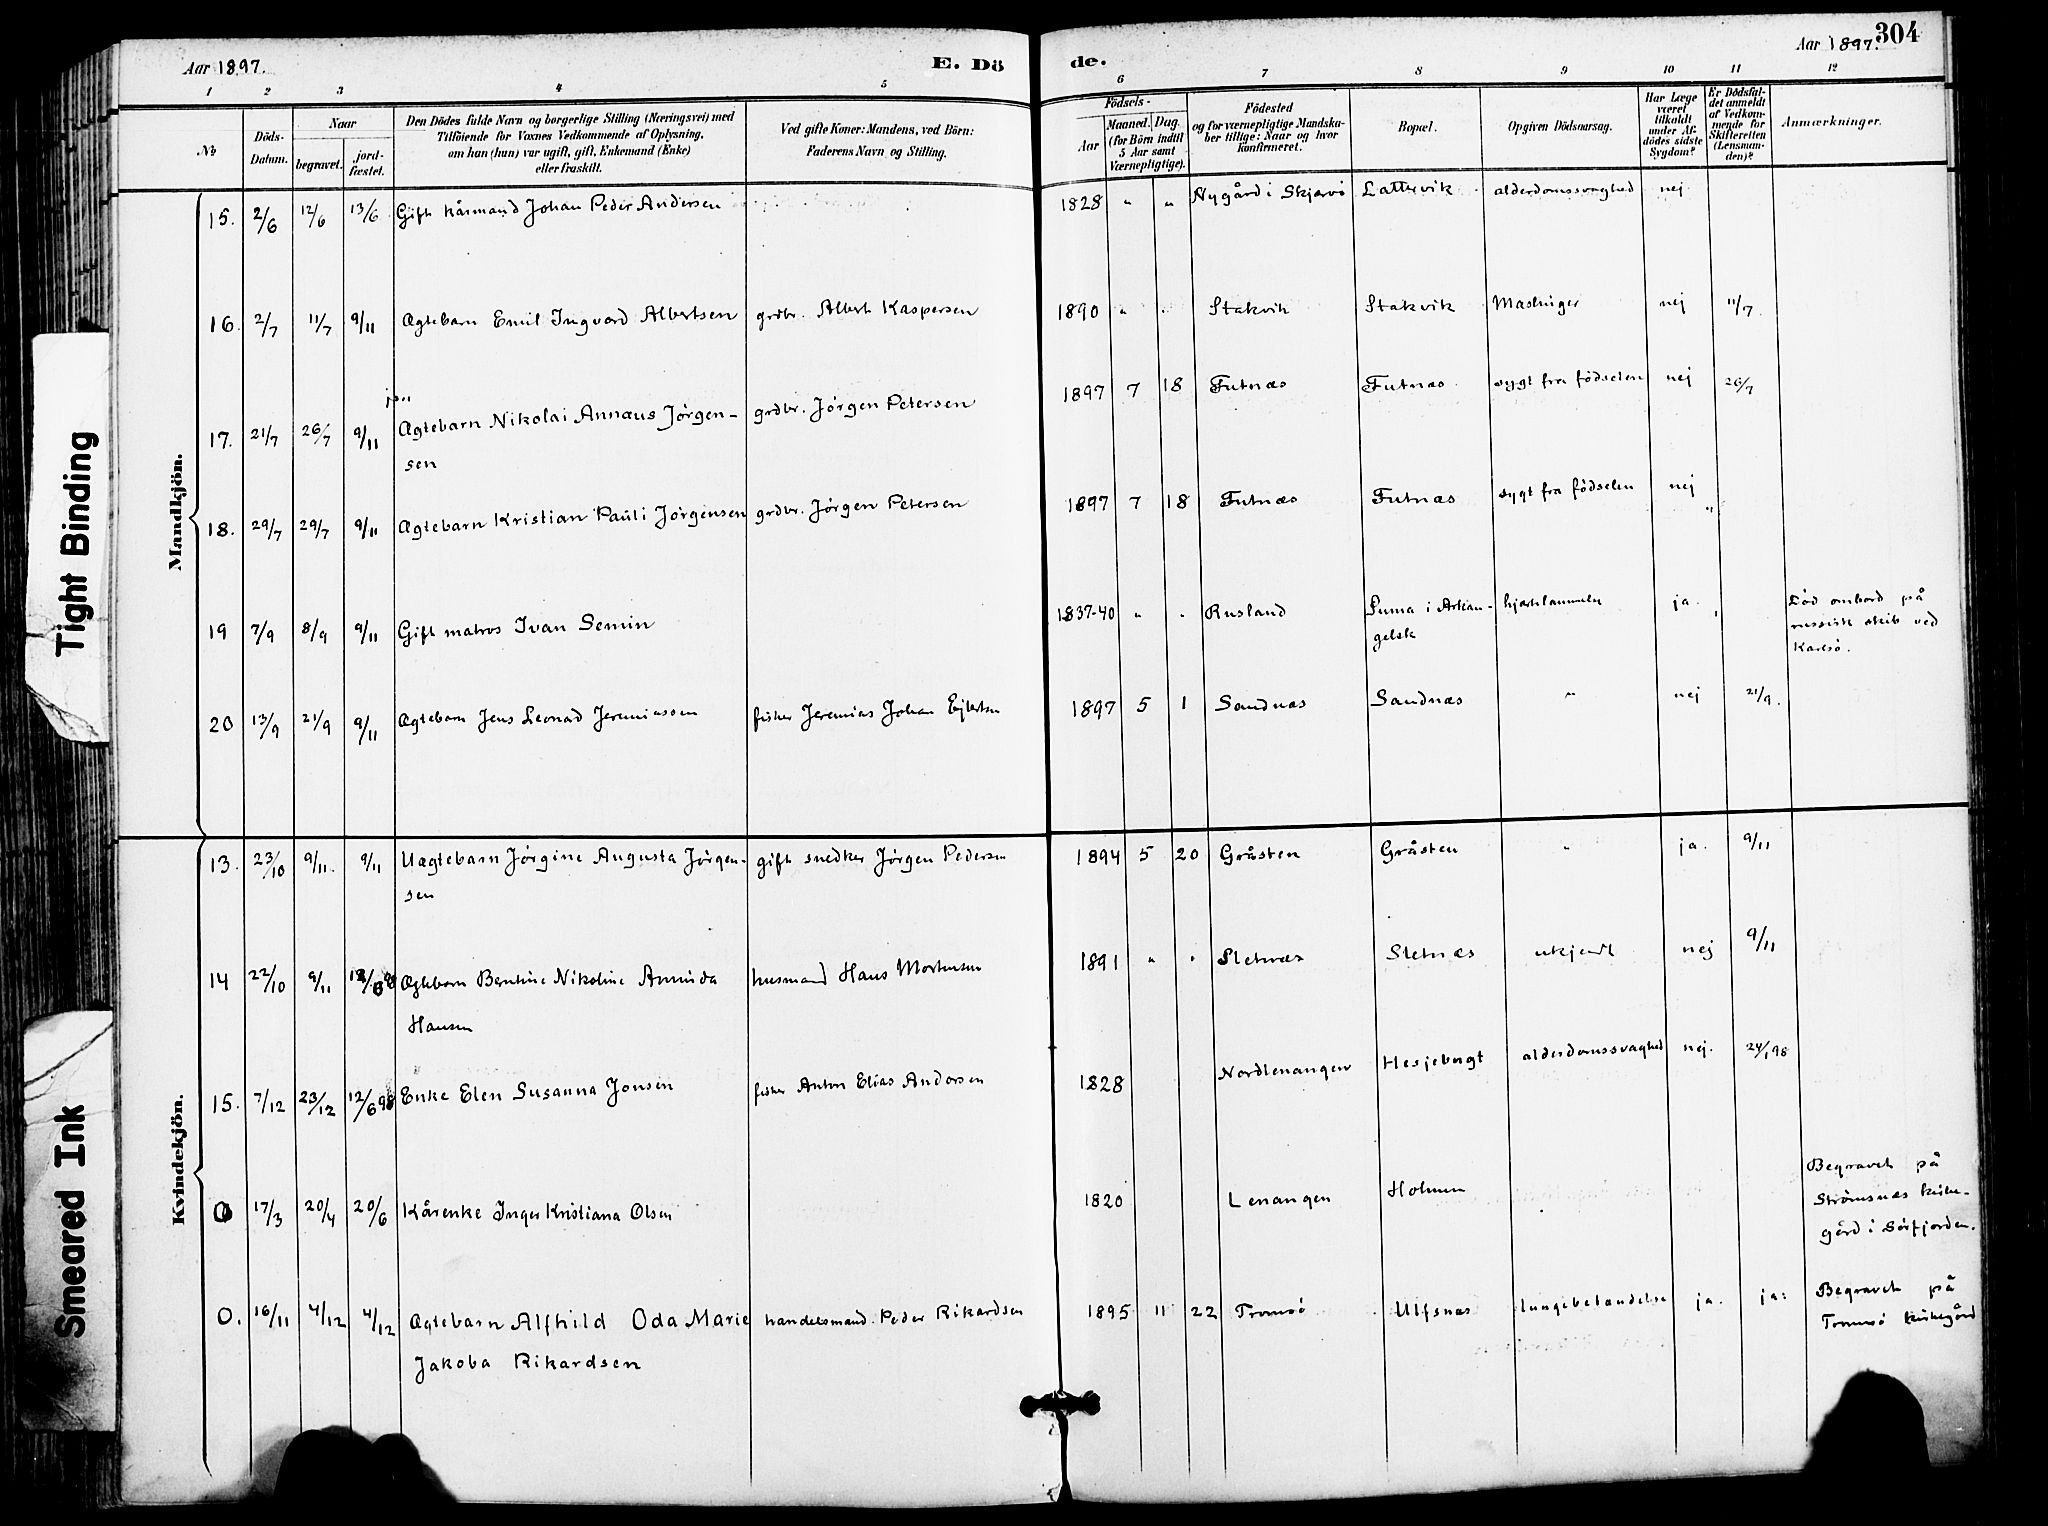 Aar 1897.
E. Dö
de.
Aar 1897.
304
1 2 3 4 5
6 7 8 9 10 11 12
No
Döds-Datum.
Naar
begravet.
jord-fæstet.
Den Dödes fulde Navn og borgerlige Stilling (Næringsvei) med
Tilföiende for Voxnes Vedkommende af Oplysning,
om han (hun) var ugift, gift, Enkemand (Enke)
eller fraskilt.
Ved gifte Koner: Mandens, ved Börn:
Faderens Navn og Stilling.
Födsels-
Aar
Maaned. Dag.
(for Börn indtil
5 Aar samt
Værnepligtige).
Födested
og for værnepligtige Mandska-
ber tillige: Naar og hvor
konfirmeret.
Bopæl.
Opgiven Dödsaarsag.
Har Læge
været
tilkaldt
under Af-
dödes sidste
Sygdom?
Er Dödsfal-
det anmeldt
af Vedkom-
mende for
Skifteretten
(Lensman-
den)?
Anmærkninger.
Mandkjön.
15. 2/6 12/6 13/6 Gift kårmand Johan Peder Andersen 1828 " " Nygård i Skjærvö Lattervik alderdomssvaghed nej
16. 2/7 11/7 9/11 Ægtebarn Emil Ingvard Albertsen grdbr. Albert Kaspersen 1890 " " Stakvik Stakvik Maslinger nej 11/7.
17. 21/7 26/7 9/11 Ægtebarn Nikolai Annæus Jörgen-
sen grdbr. Jörgen Petersen 1897 7 18 Futnæs Futnæs sygt fra födselen nej 26/7
18. 29/7 29/7 9/11 Ægtebarn Kristian Pauli Jörgensen grdbr. Jörgen Petersen 1897 7 18 Futnæs Futnæs sygt fra födselen nej "
19 7/9 8/9 9/11 Gift matros Ivan Semin 1837-40 " " Rusland Suma i Arkan-
gelsk hjertelammelse ja.
Död ombord på
russisk skib ved
Karlsö.
20 13/9 21/9 9/11 Ægtebarn Jens Leonad Jeremiassen fisker Jeremias Johan Ejlertsen 1897 5 1 Sandnæs Sandnæs " nej 21/9.
Kvindekjön.
13. 23/10 9/11. 9/11 Uægtebarn Jörgine Augusta Jörgen-
sen gift snedker Jörgen Pedersen 1894 5 20 Gråsten Gråsten " ja. 9/11
14 22/10 9/11 12/6 98 Ægtebarn Berntine Nikoline Aminda
Hansen husmand Hans Mortensen 1891 " " Sletnæs Sletnæs ukjendt nej 9/11
15. 7/12 23/12 12/6 98 Enke Elen Susanna Jonsen fisker Anton Elias Andersen 1828 Nordlenangen Hesjebugt alderdomssvaghed nej. 24/1 98
0 17/3 20/4 20/6 Kårenke Inger Kristiana Olsen 1820 Lenangen Holmen
Begravet på
Strömsnæs kirke-
gård i Sörfjorden.
0. 16/11 4/12 4/12 Ægtebarn Alfhild Oda Marie
Jakoba Rikardsen handelsmand Peder Rikardsen 1895 11 22 Tromsö Ulfsnæs lungebetændelse ja. ja.
Begravet på
Tromsö kirkegård
Tight Binding
Smeared Ink